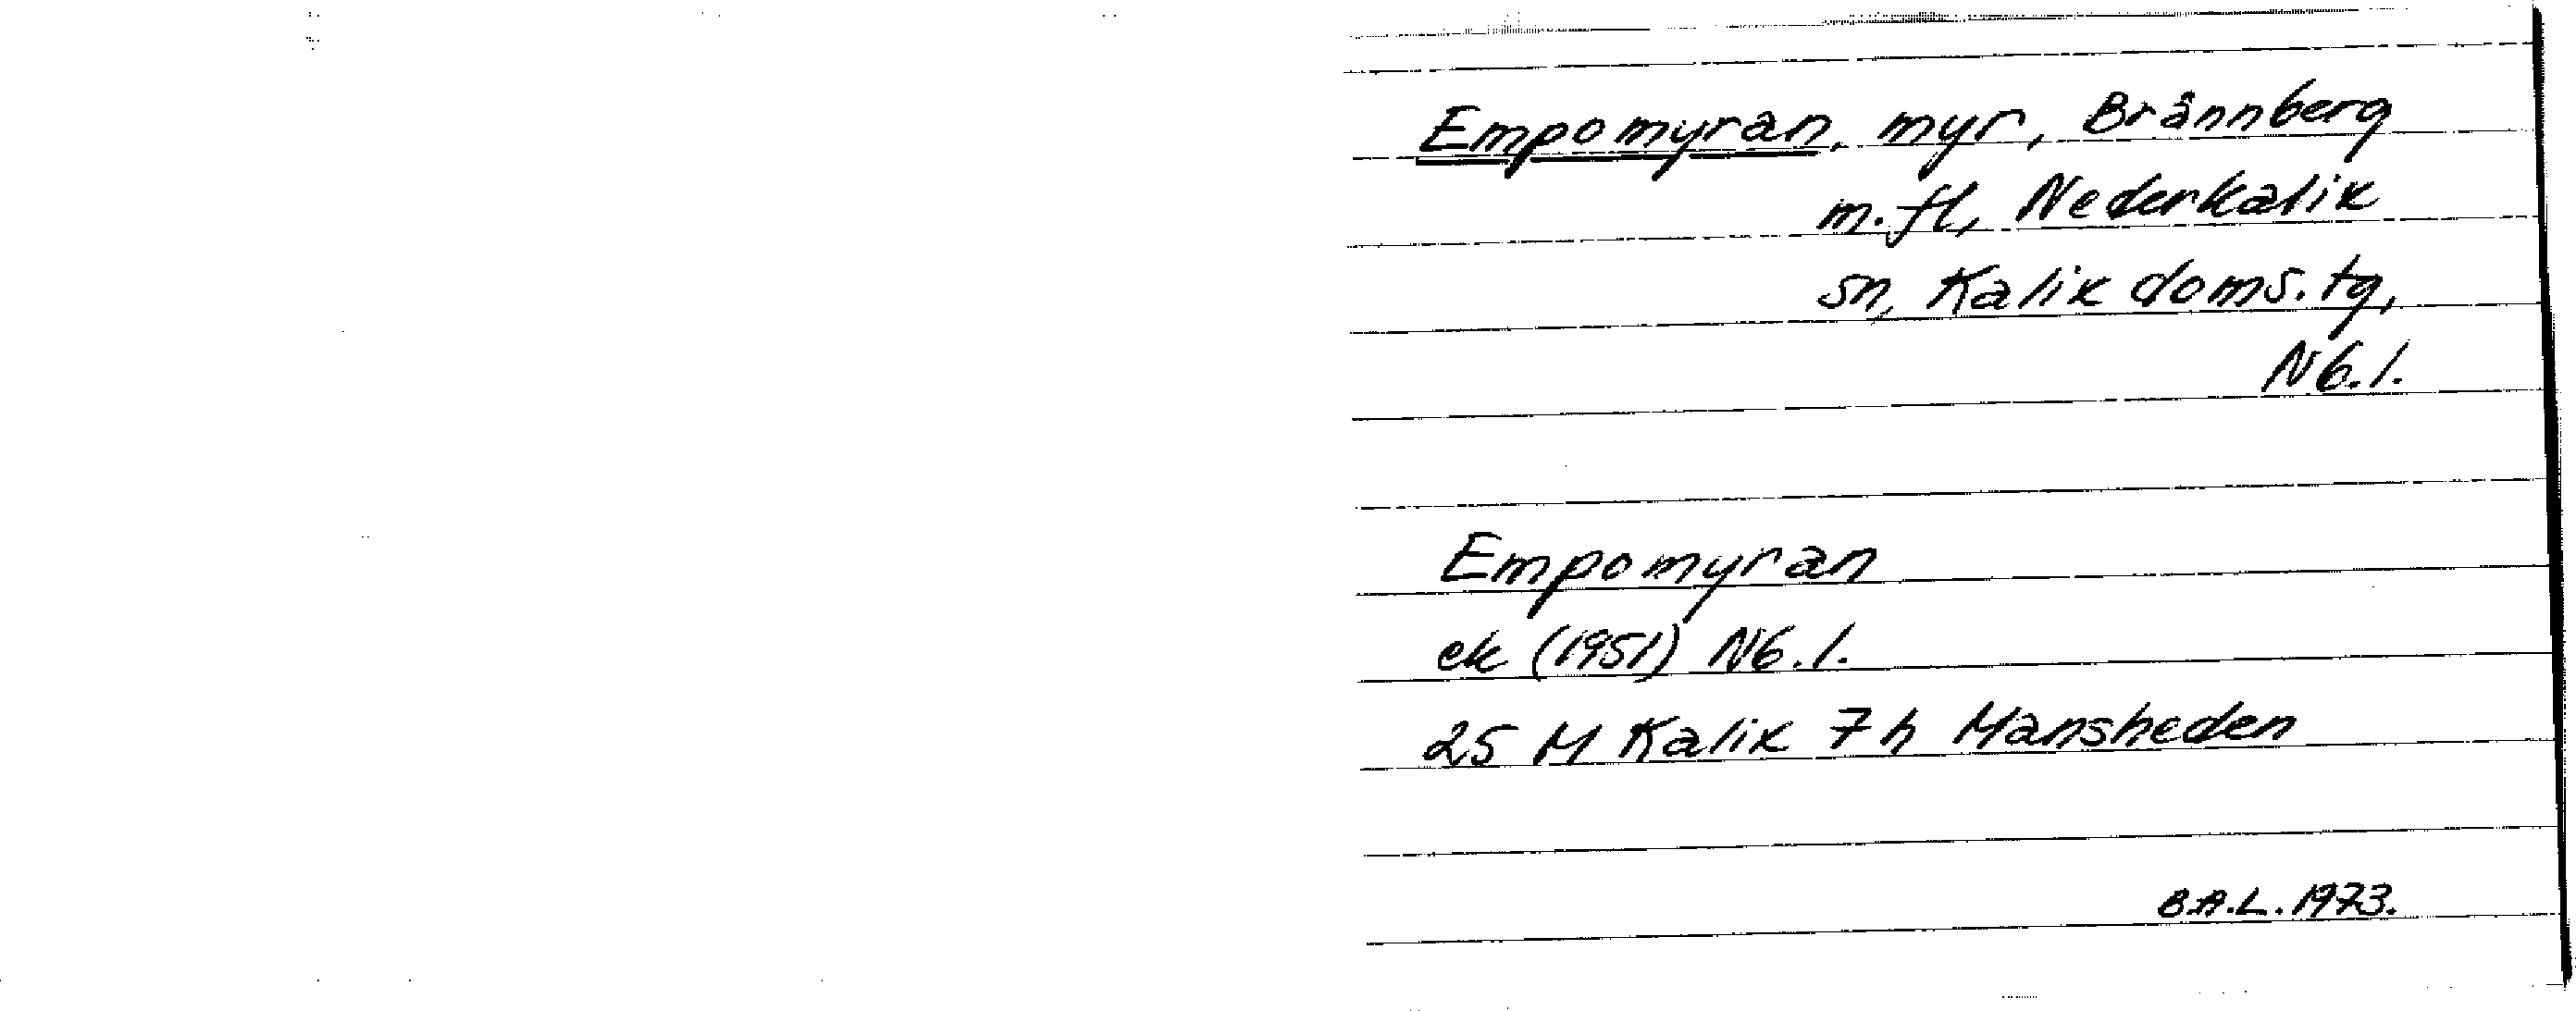 Empomyran, myr, Brännberg
m.fl, Nederkalix
sn, Kalix doms.tg,
Nb.l.
Empomyran
ek (1951) Nb.l.
25 M Kalix 7 h Mansheden
B.A.L. 1973.